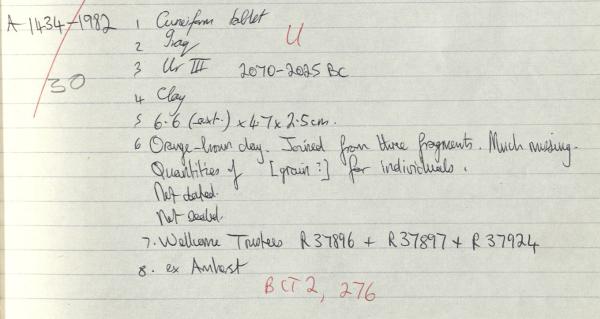 A-1434-1982 1 Cuneiform tablet
U
2 Iraq
30
3 Ur III 2070-2025 BC
4 Clay
5 6.6 (ext.) x 4.7 x 2.5cm.
6 Orange-brown clay. Joined from three fragments. Much missing.
Quantities of [grain?] for individuals.
Not dated.
Not sealed.
7. Wellcome Trustees R37896 + R37897 + R37924
8. ex Amherst
BCT 2, 276